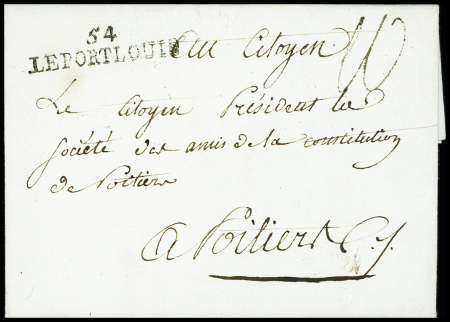 54
LE PORT LOUIS
Au Citoyen
Le Citoyen Président de la
Société des amis de la constitution
de Poitiers
A Poitiers